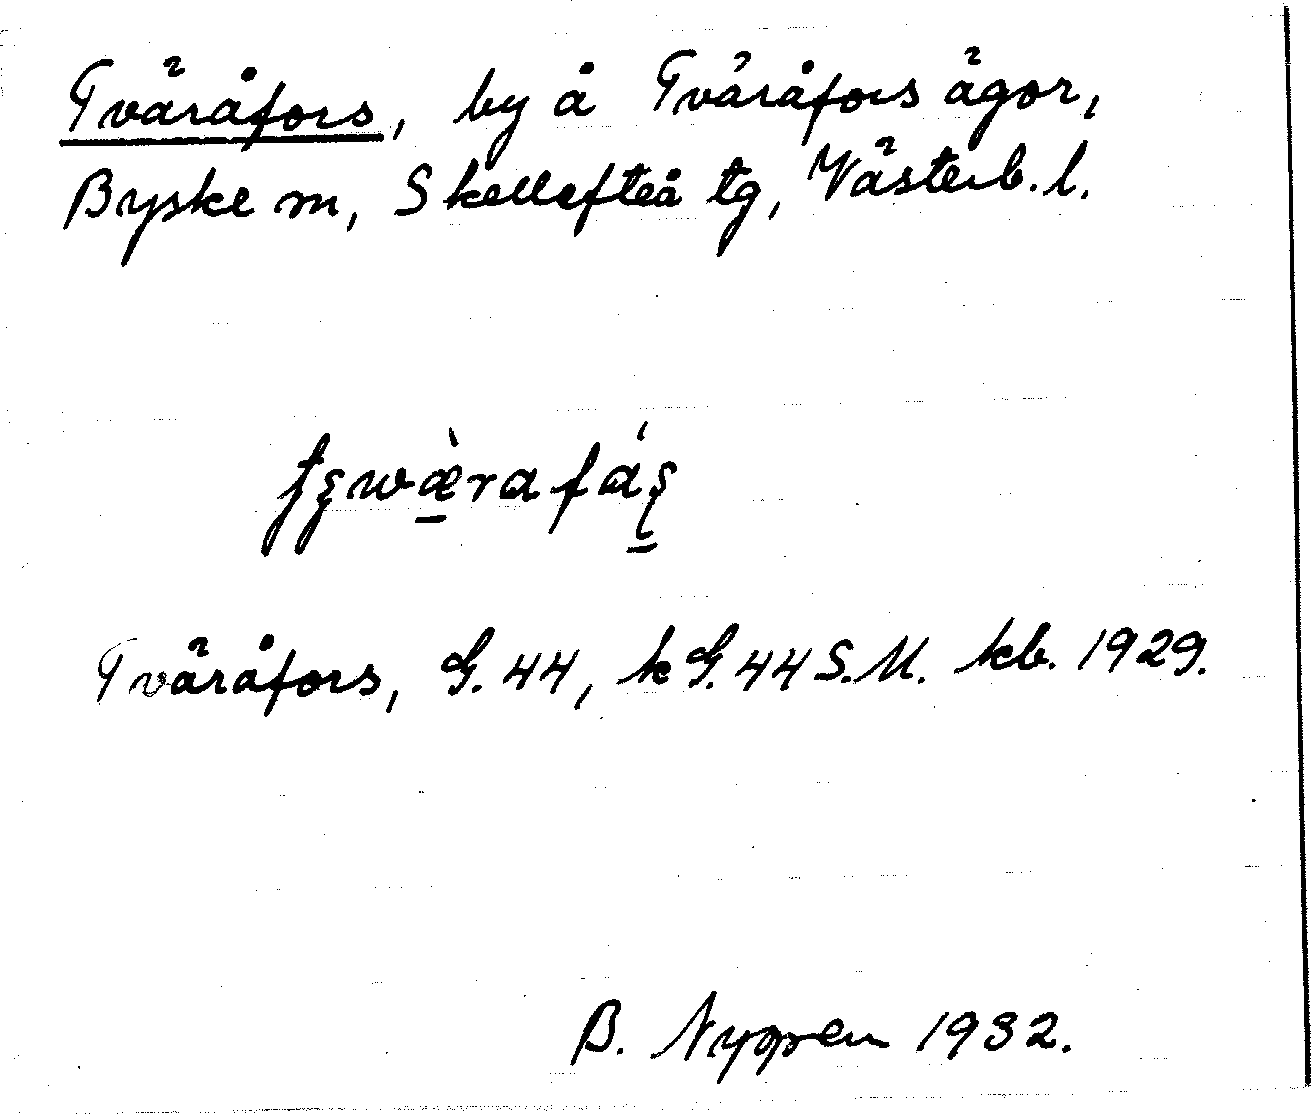 Tväråfors, by å Tväråfors ägor,
Byske sn, Skellefteå tg, Västerb. l.
Tväråfors, G. 44, k G. 44 S.M. kb. 1929.
B. Nygren 1932.